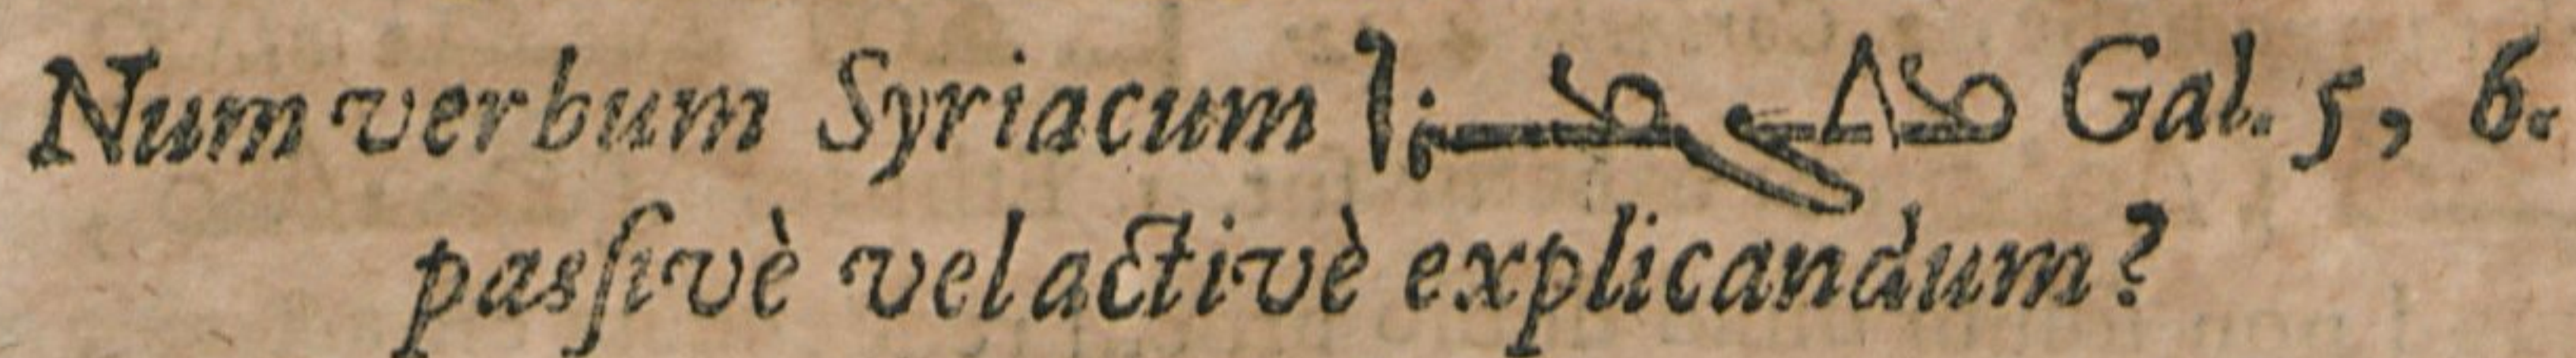 Num verbum Syriacum ܡܬܓܡܪܐ Gal. 5, 6.
pasſivè vel activè explicandum?